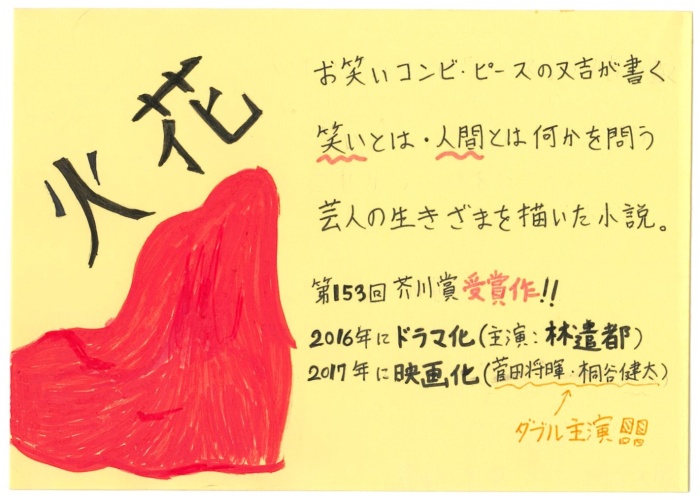 火花
お笑いコンビ・ピースの又吉が書く
笑いとは・人間とは何かを問う
芸人の生きざまを描いた小説。
第153回芥川賞受賞作!!
2016年にドラマ化(主演:林遣都)
2017年に映画化(菅田将暉・桐谷健太)
ダブル主演